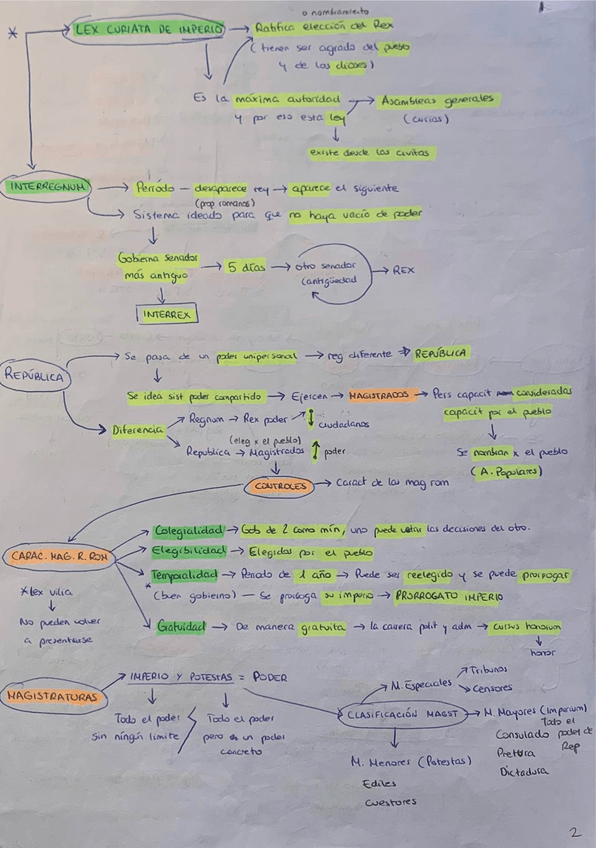 o nombramiento
* LEX CURIATA DE IMPERIO → Ratifica elección del Rex
(tienen ser agrado del pueblo
y de los dioses)
Es la máxima autoridad → Asambleas generales
y por eso esta ley (curias)
existe desde las civitas
INTERREGNUM → Período - desaparece rey → aparece el siguiente
(prop romanos)
→ Sistema ideado para que no haya vacío de poder
Gobierna senador → 5 días → otro senador → REX
más antiguo (antigüedad
INTERREX
REPÚBLICA → Se pasa de un poder unipersonal → reg diferente → REPÚBLICA
Se idea sist poder compartido → Ejercen → MAGISTRADOS → Pers capacit consideradas
capacit por el pueblo
Diferencia → Regnum → Rex poder → ciudadanos
(eleg x el pueblo)
Republica → Magistrados poder
Se nombran x el pueblo
(A. Populares)
CONTROLES → Caract de las mag rom
CARAC. MAG. R. ROM
Colegialidad → Gob de 2 como mín, uno puede vetar las decisiones del otro.
Elegibilidad → Elegidos por el pueblo
Temporalidad → Periodo de 1 año → Puede ser reelegido y se puede prorrogar
* (buen gobierno) - Se prorroga su imperio → PRORROGATO IMPERIO
*Lex vilia
No pueden volver
a presentarse
Gratuidad → De manera gratuita → la carrera polit y adm → cursus honorum
honor
MAGISTRATURAS → IMPERIO Y POTESTAS = PODER
Todo el poder
sin ningún limite
Todo el poder
pero es un poder
concreto
CLASIFICACIÓN MAGST
M. Especiales → Tribunos
→ Censores
M. Mayores (Imperium)
Todo el
poder de
Rep
Consulado
Pretura
Dictadura
M. Menores (Potestas)
Ediles
Cuestores
2